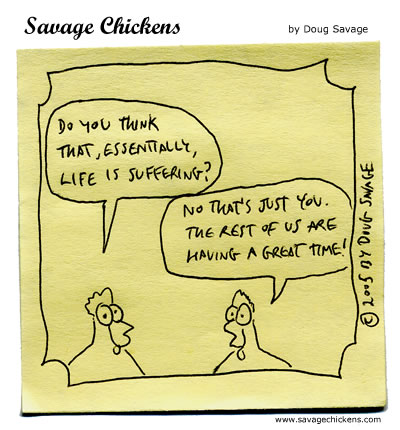 Savage Chickens
by Doug Savage
DO YOU THINK
THAT, ESSENTIALLY,
LIFE IS SUFFERING?
NO THAT'S JUST YOU.
THE REST OF US ARE
HAVING A GREAT TIME!
© 2005 BY DOUG SAVAGE
www.savagechickens.com